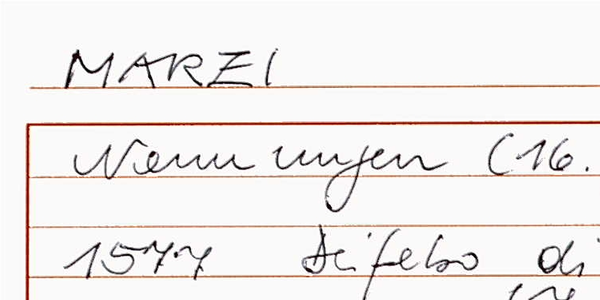 MARZI
Nennungen (16.
1577 Deifebo di